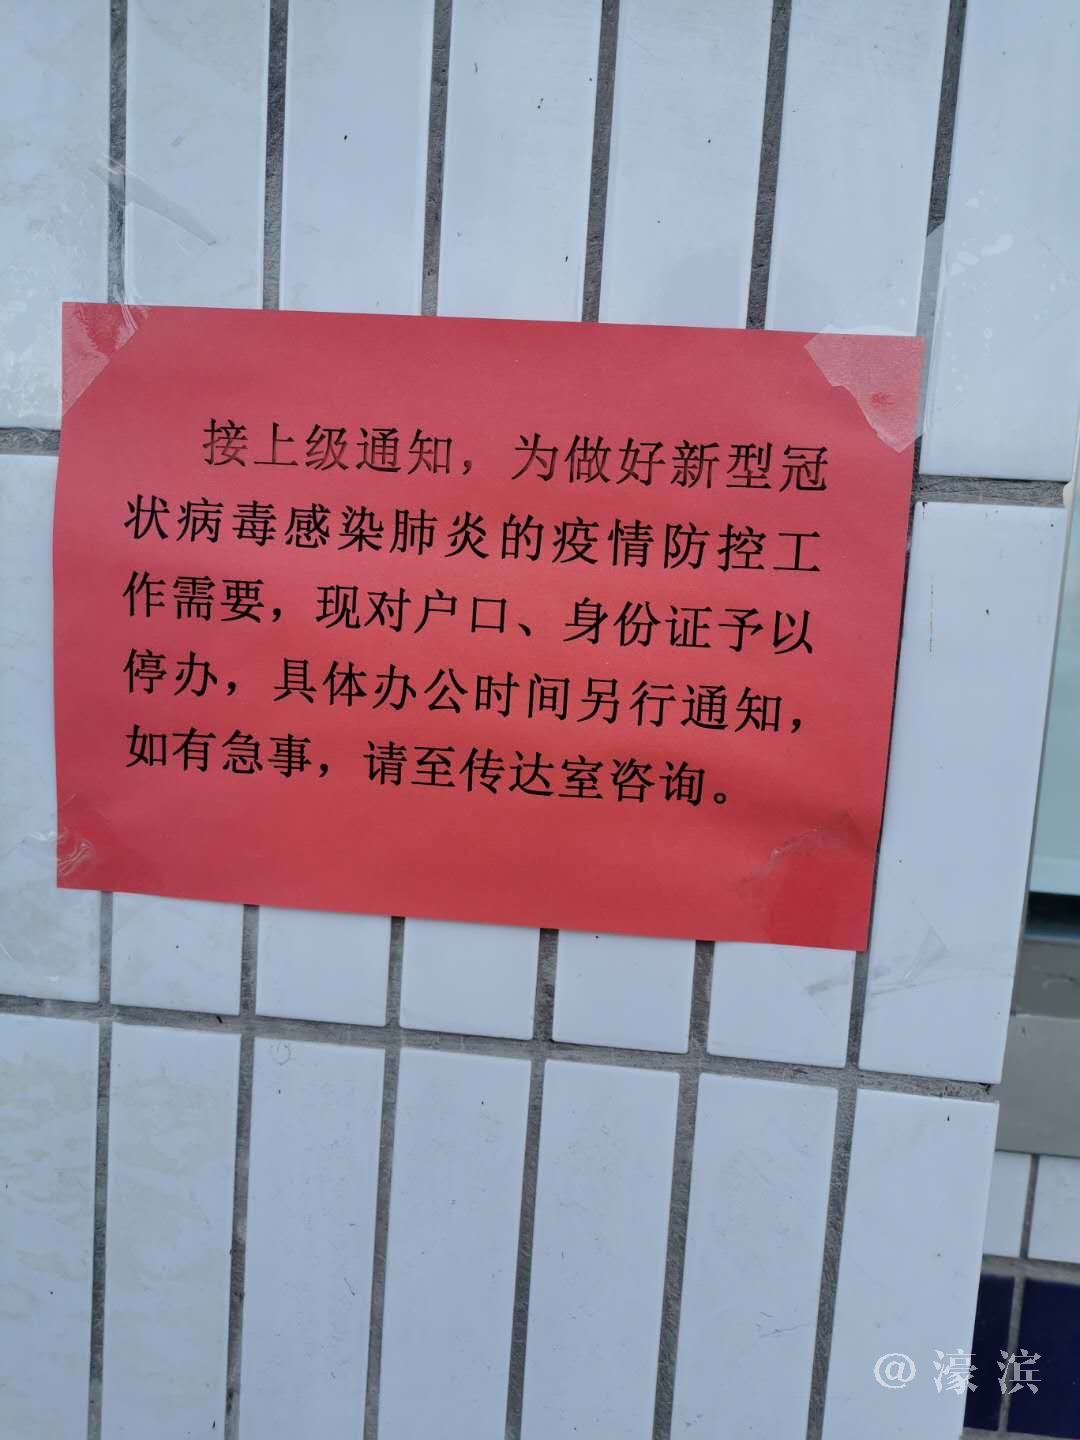 接上级通知，为做好新型冠
状病毒感染肺炎的疫情防控工
作需要，现对户口、身份证予以
停办，具体办公时间另行通知，
如有急事，请至传达室咨询。
@濠滨